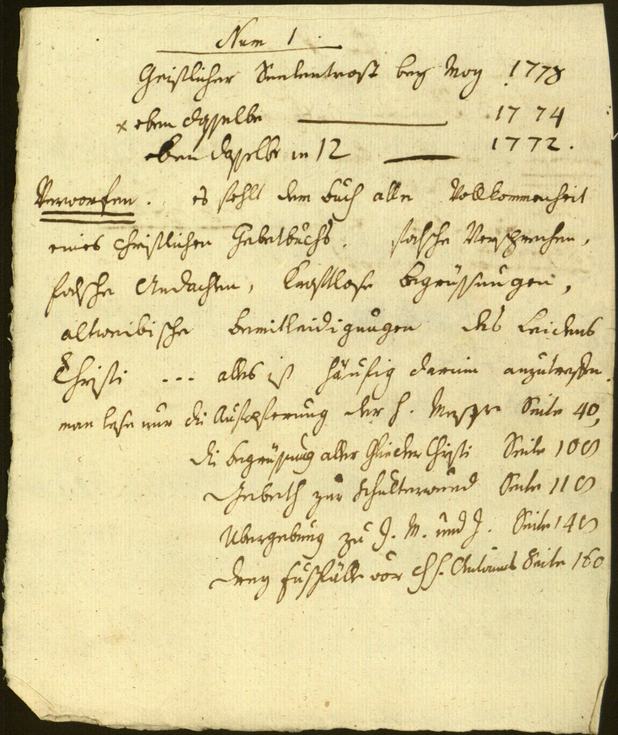 Num 1.
Geistlicher Seelentrost bey May 1778
x eben dasselbe ——— 1774
eben dasselbe in 12 —— 1772.
Verworfen. es fehlt dem Buch alle Vollkommenheit
eines christlichen Gebetbuchs. falsche Versprechen,
falsche Andachten, kraftlose Begrüssungen,
altweibische bemitleidigungen des Leidens
Christi --- alles ist häufig darinn anzutreffen.
man lese nur die Aufopferung der h. Messe Seite 40,
die begrüssung aller Glieder Christi Seite 108
Gebeth zur Schulterwund Seite 118
Übergebung zu J. M. und J. Seite 148
Drey Fußfälle vor Antonius Seite 160